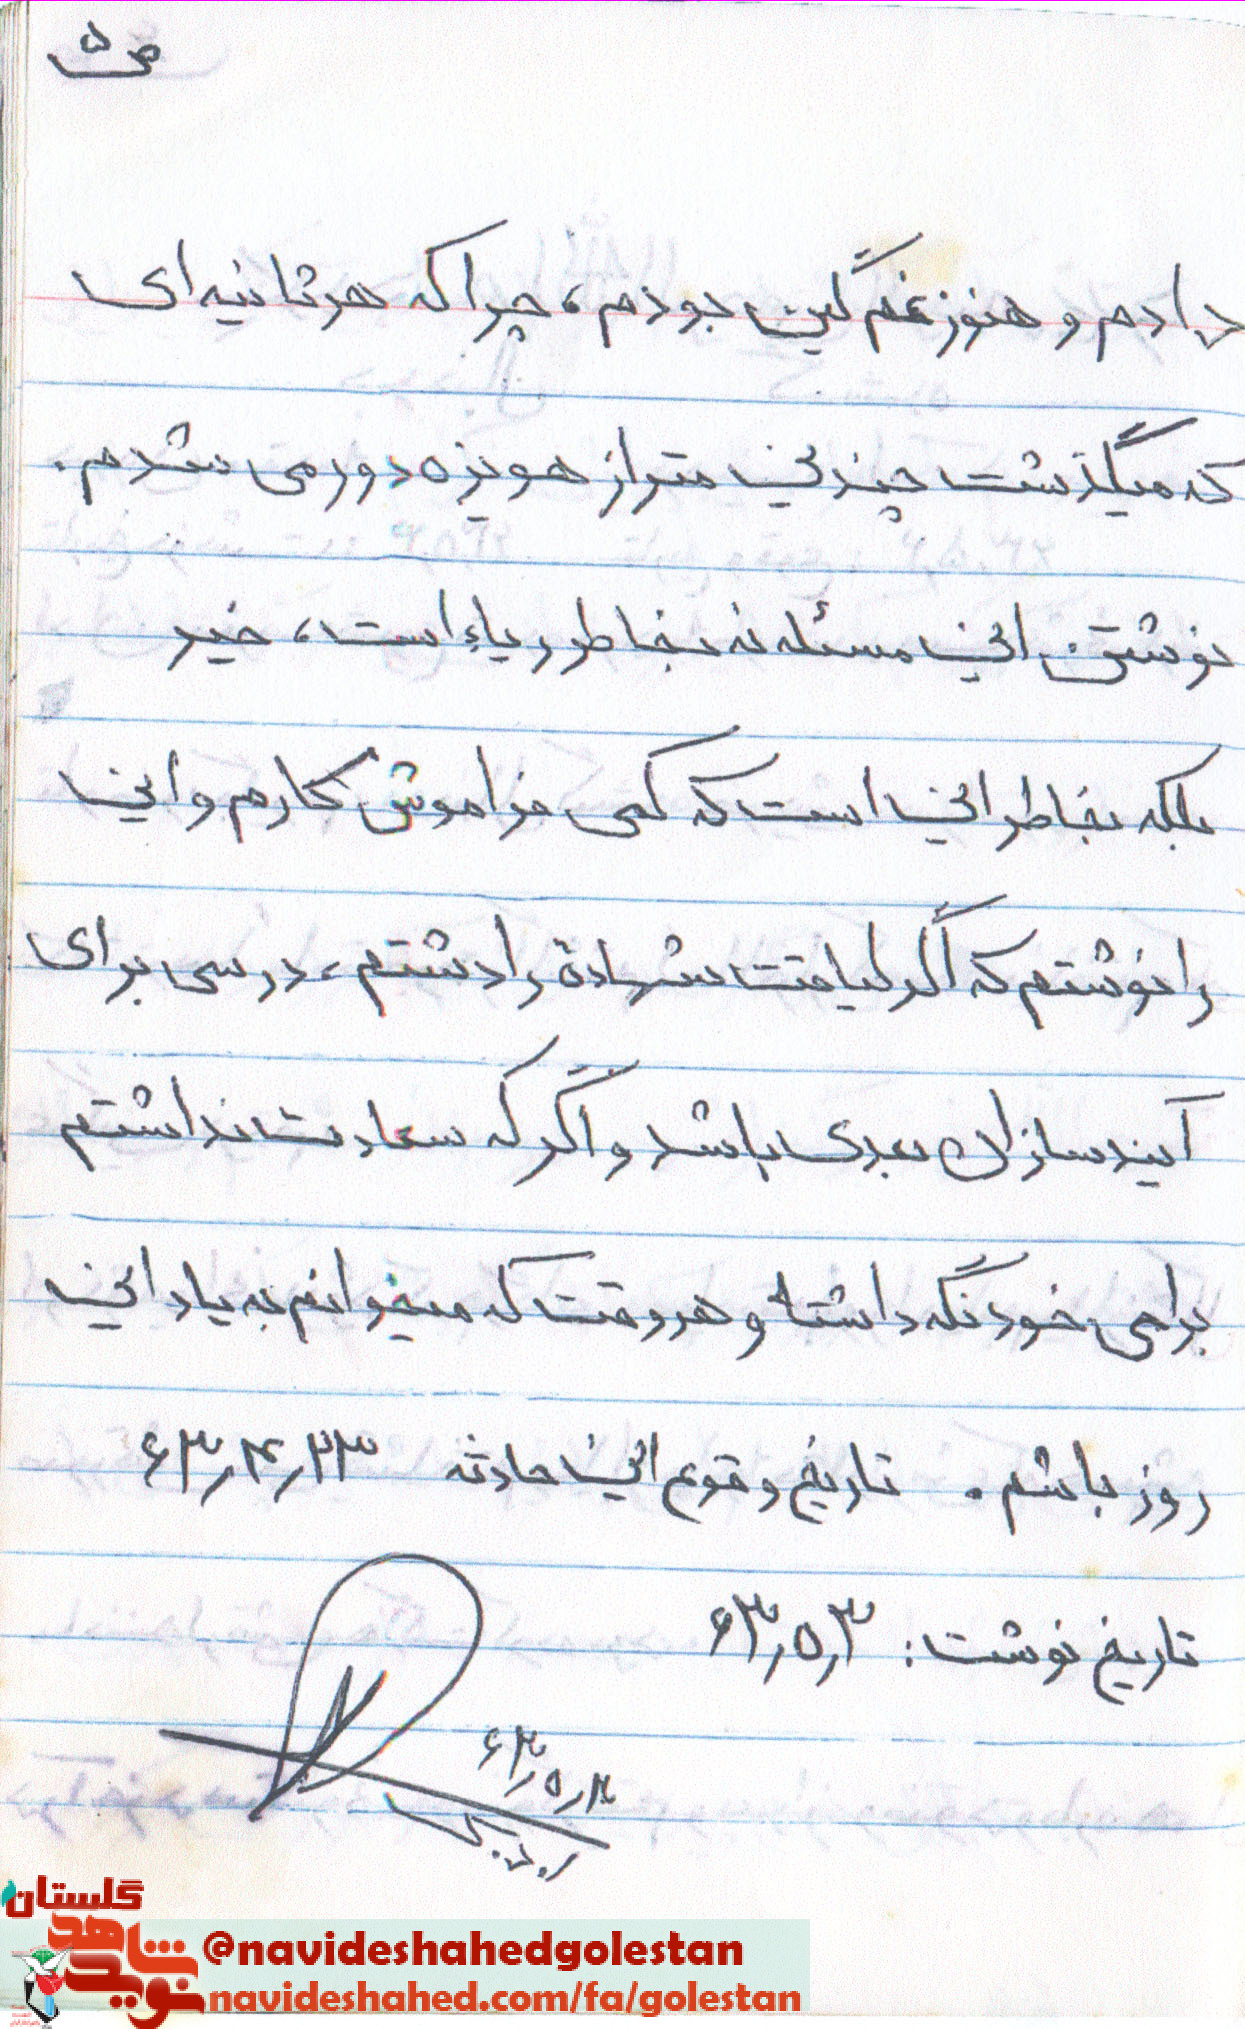 ص ۵
دادم و هنوز غمگین بودم، چرا که هر ثانیه ای
که میگذشت چندین متر از هویزه دور می شدم.
نوشتن این مسئله نه بخاطر ریاء است، خیر
بلکه بخاطر این است که کمی فراموش کارم و این
را نوشتم که اگر لیاقت شهادة را دشتم، درسی برای
آیندسازان بعدی باشد و اگر که سعادت نداشتم
برای خود نگه داشته و هر وقت که میخوانم به یاد این
روز باشم. تاریخ وقوع این حادثه ۶۳,۴,۲۳
تاریخ نوشت: ۶۳,۵,۳
۶۳,۵,۴
گلستان
نوید شاهد
@navideshahedgolestan
navideshahed.com/fa/golestan